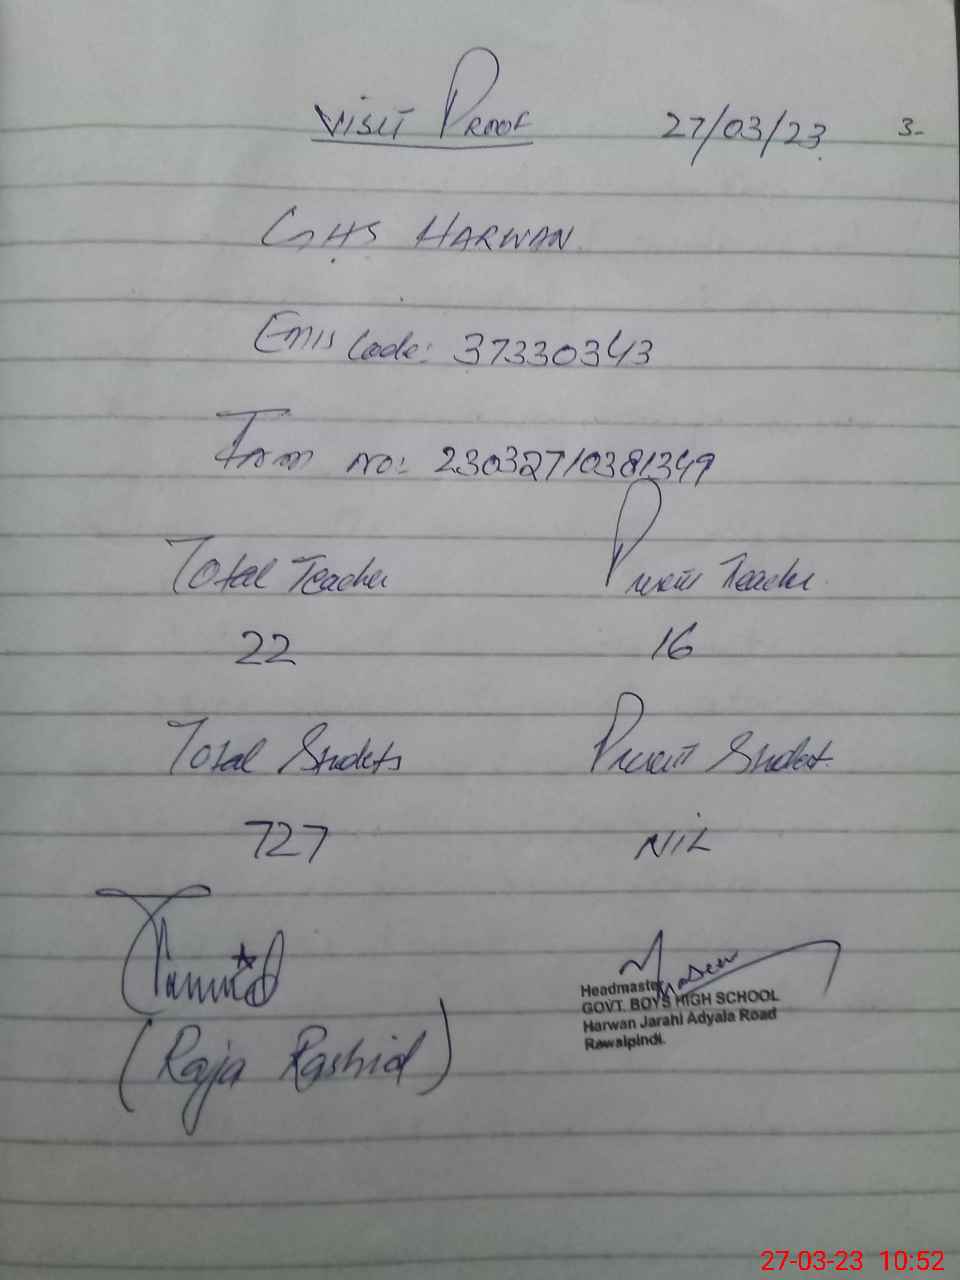 Visit Proof 27/03/23 3-
GHS HARWAN
Emis Code: 37330343
Form no: 23032710381349
Total Teacher Present Teacher
22 16
Total Students Present Student
727 NiL
Headmaster
GOVT. BOYS HIGH SCHOOL
Harwan Jarahi Adyala Road
Rawalpindi.
(Raja Rashid)
27-03-23 10:52